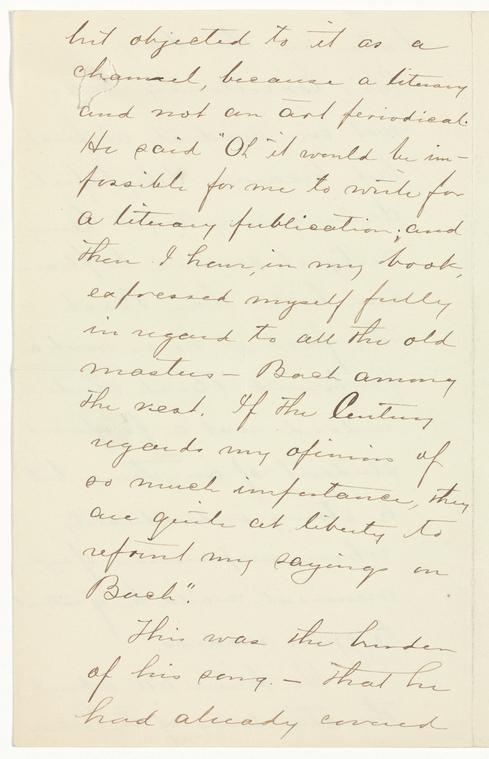 but objected to it as a
channel, because a literary
and not an art periodical.
He said "Oh" it would be im-
possible for me to write for
a literary publication; and
then I have, in my book,
expressed myself fully
in regard to all the old
masters - Bach among
the rest. If the Century
regards my opinions of
so much importance, they
are quite at liberty to
reprint my sayings on
Bach".
This was the burden
of his song. - that he
had already covered